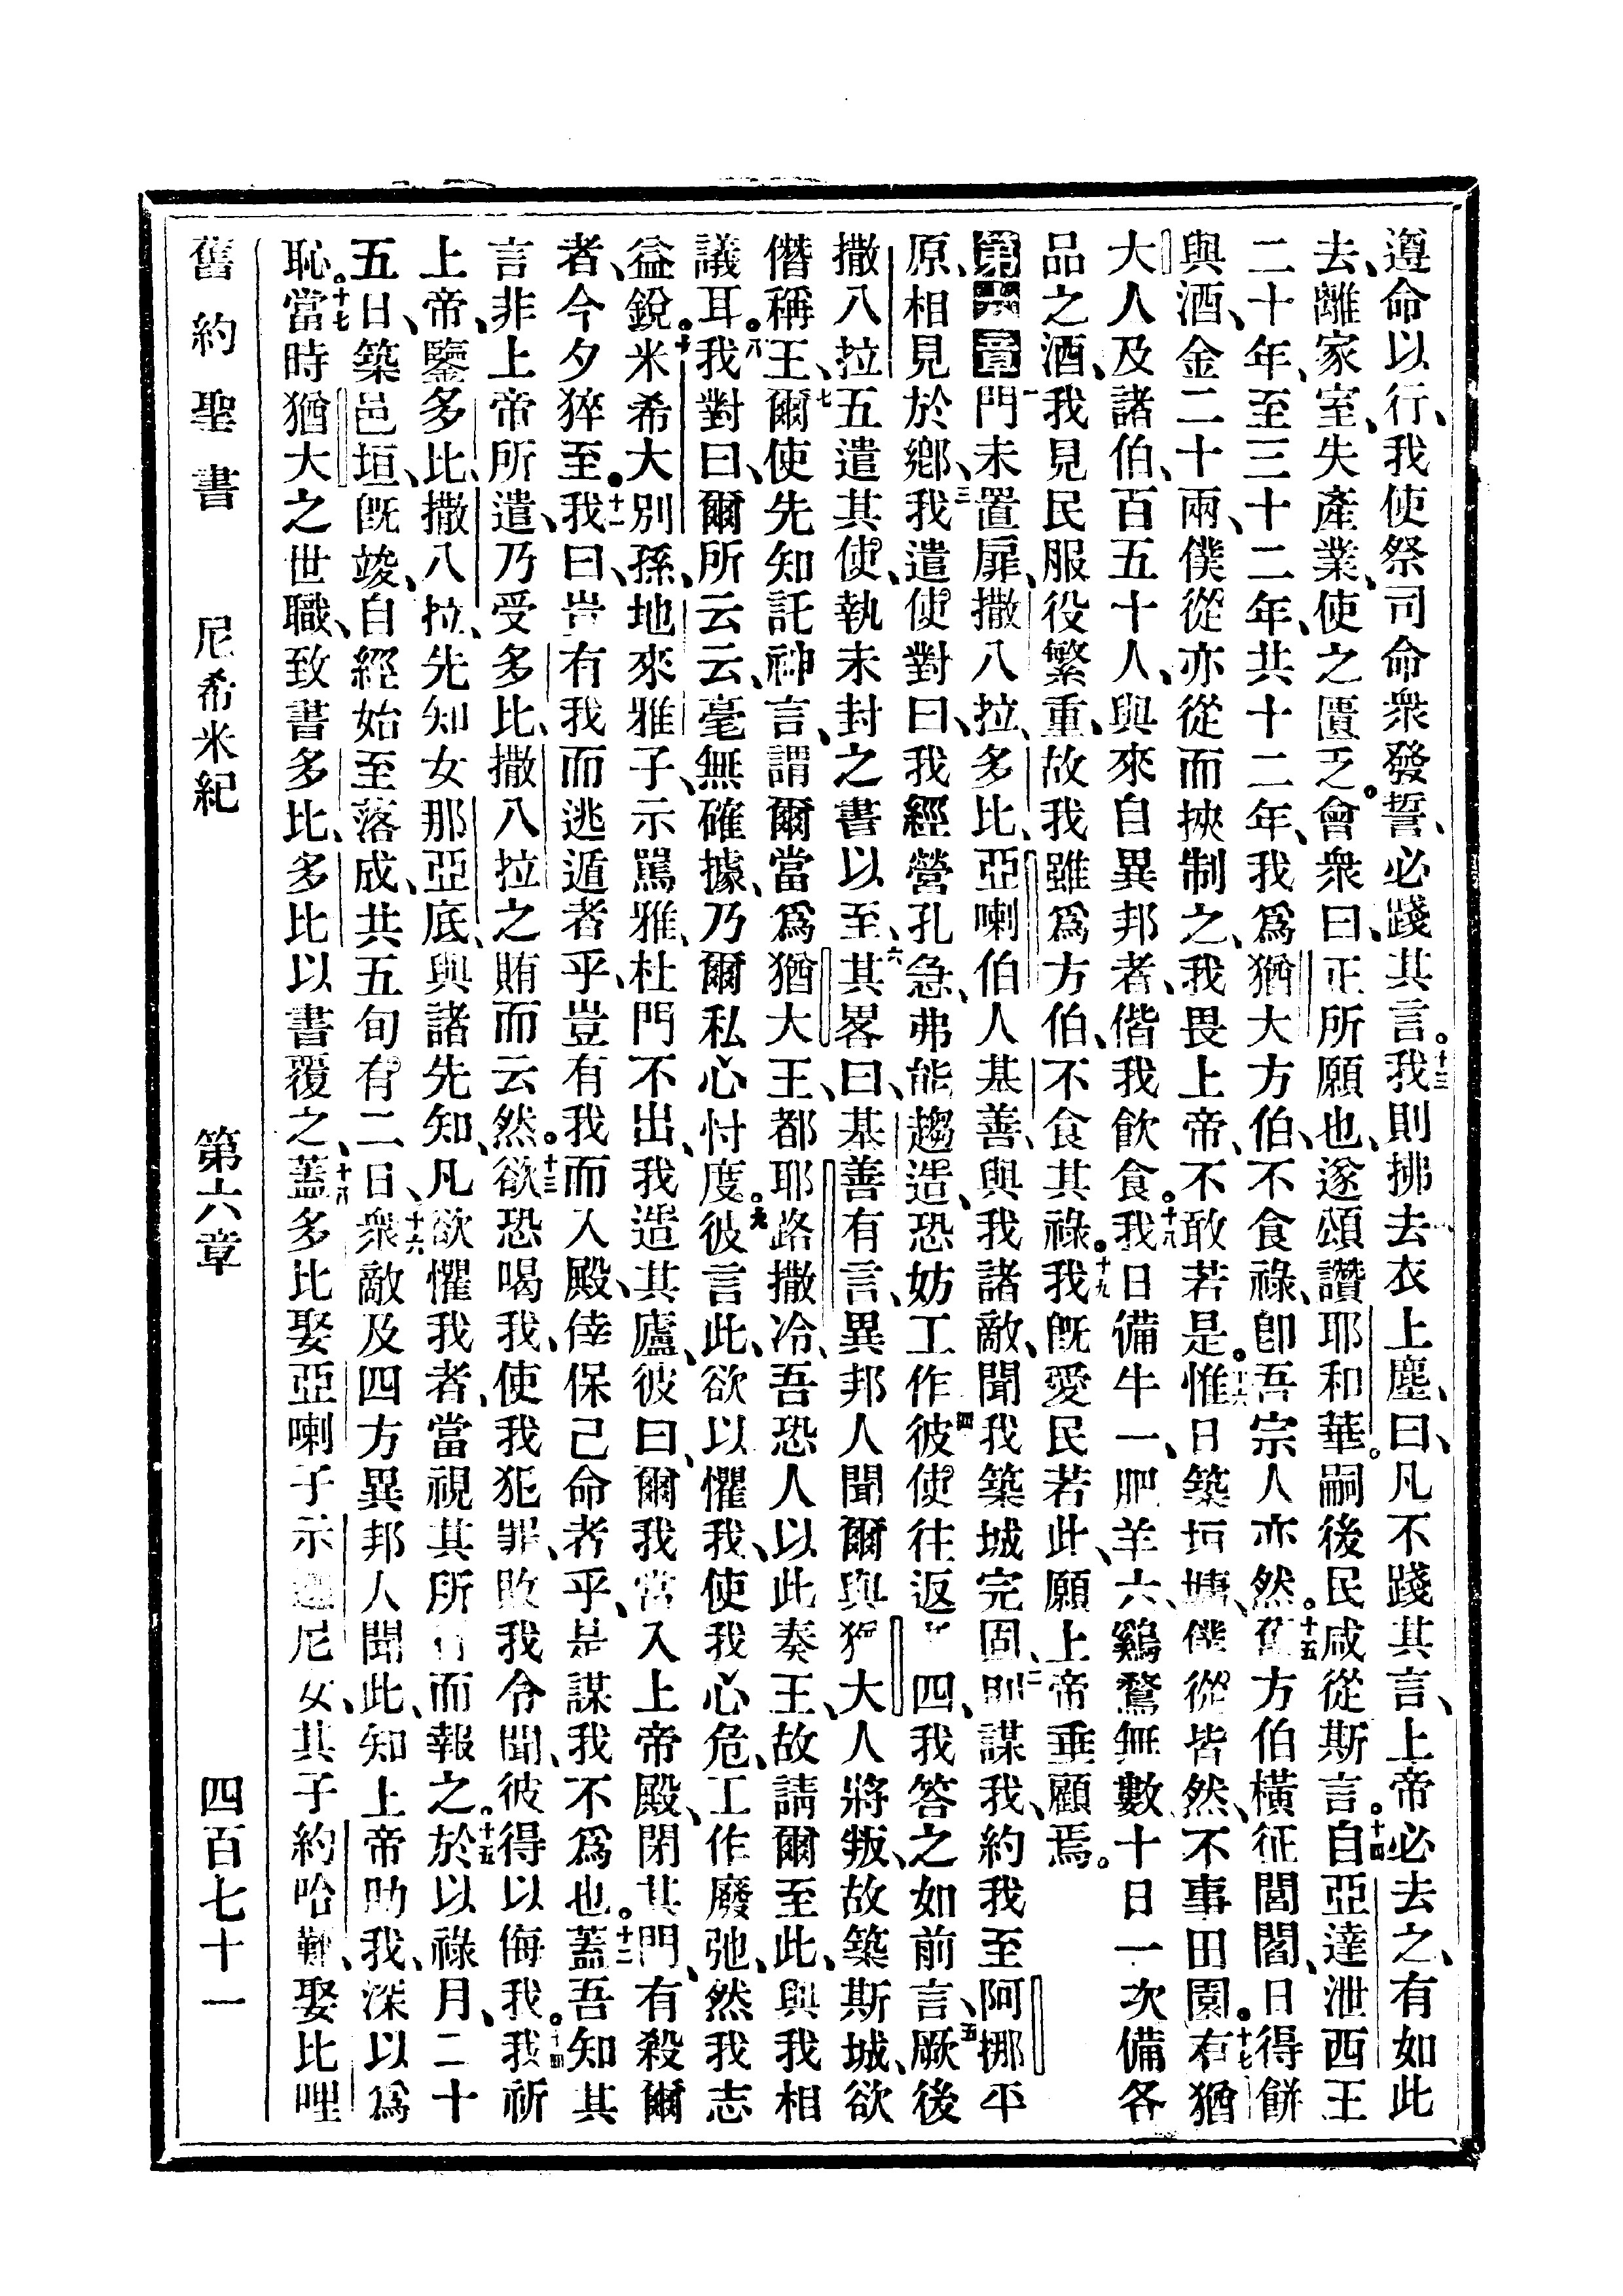 遵命以行、我使祭司命衆發誓、必踐其言。十三我則拂去衣上塵、曰、凡不踐其言、上帝必去之、有如此
去、離家室、失產業、使之匱乏。會衆曰、正所願也、遂頌讚耶和華。嗣後民咸從斯言。十四自亞達泄西王
二十年、至三十二年、共十二年、我爲猶大方伯、不食祿、卽吾宗人亦然。十五舊方伯橫征閭閻、日得餅
與酒、金二十兩、僕從亦從而挾制之、我畏上帝、不敢若是。十六惟日築垣墉、僕從皆然、不事田園。十七有猶
大人及諸伯、百五十人、與來自異邦者、偕我飲食。十八我日備牛一、肥羊六、鷄鶩無數、十日一次備各
品之酒、我見民服役繁重、故我雖爲方伯、不食其祿。十九我既愛民若此、願上帝垂顧焉。
第六章 一門未置扉、撒八拉、多比、亞喇伯人基善、與我諸敵、聞我築城完固、二則謀我、約我至阿挪平
原、相見於鄉、三我遣使對曰、我經營孔急、弗能趨造、恐妨工作、四彼使往返四、我答之如前言、五厥後
撒八拉五遣其使、執未封之書以至、六其畧曰、基善有言、異邦人聞爾與猶大人將叛、故築斯城、欲
僭稱王、七爾使先知託神言、謂爾當爲猶大王、都耶路撒冷、吾恐人以此奏王、故請爾至此、與我相
議耳。八我對曰、爾所云云、毫無確據、乃爾私心忖度。九彼言此、欲以懼我、使我心危、工作廢弛、然我志
益銳。十米希大別孫、地來雅子、示罵雅、杜門不出、我造其廬、彼曰、爾我當入上帝殿、閉其門、有殺爾
者、今夕猝至。十一我曰、豈有我而逃遁者乎、豈有我而入殿、倖保己命者乎、是謀我不爲也。十二蓋吾知其
言非上帝所遣、乃受多比、撒八拉之賄而云然。十三欲恐喝我、使我犯罪、敗我令聞、彼得以侮我。十四我祈
上帝、鑒多比、撒八拉、先知女那亞底、與諸先知、凡欲懼我者、當視其所行而報之。十五於以祿月、二十
五日、築邑垣、既竣、自經始至落成、共五旬有二日、十六衆敵及四方異邦人聞此、知上帝助我、深以爲
恥。十七當時猶大之世職、致書多比、多比以書覆之、十八蓋多比娶亞喇子示迦尼女、其子約哈難、娶比哩
舊約聖書 尼希米紀 第六章 四百七十一